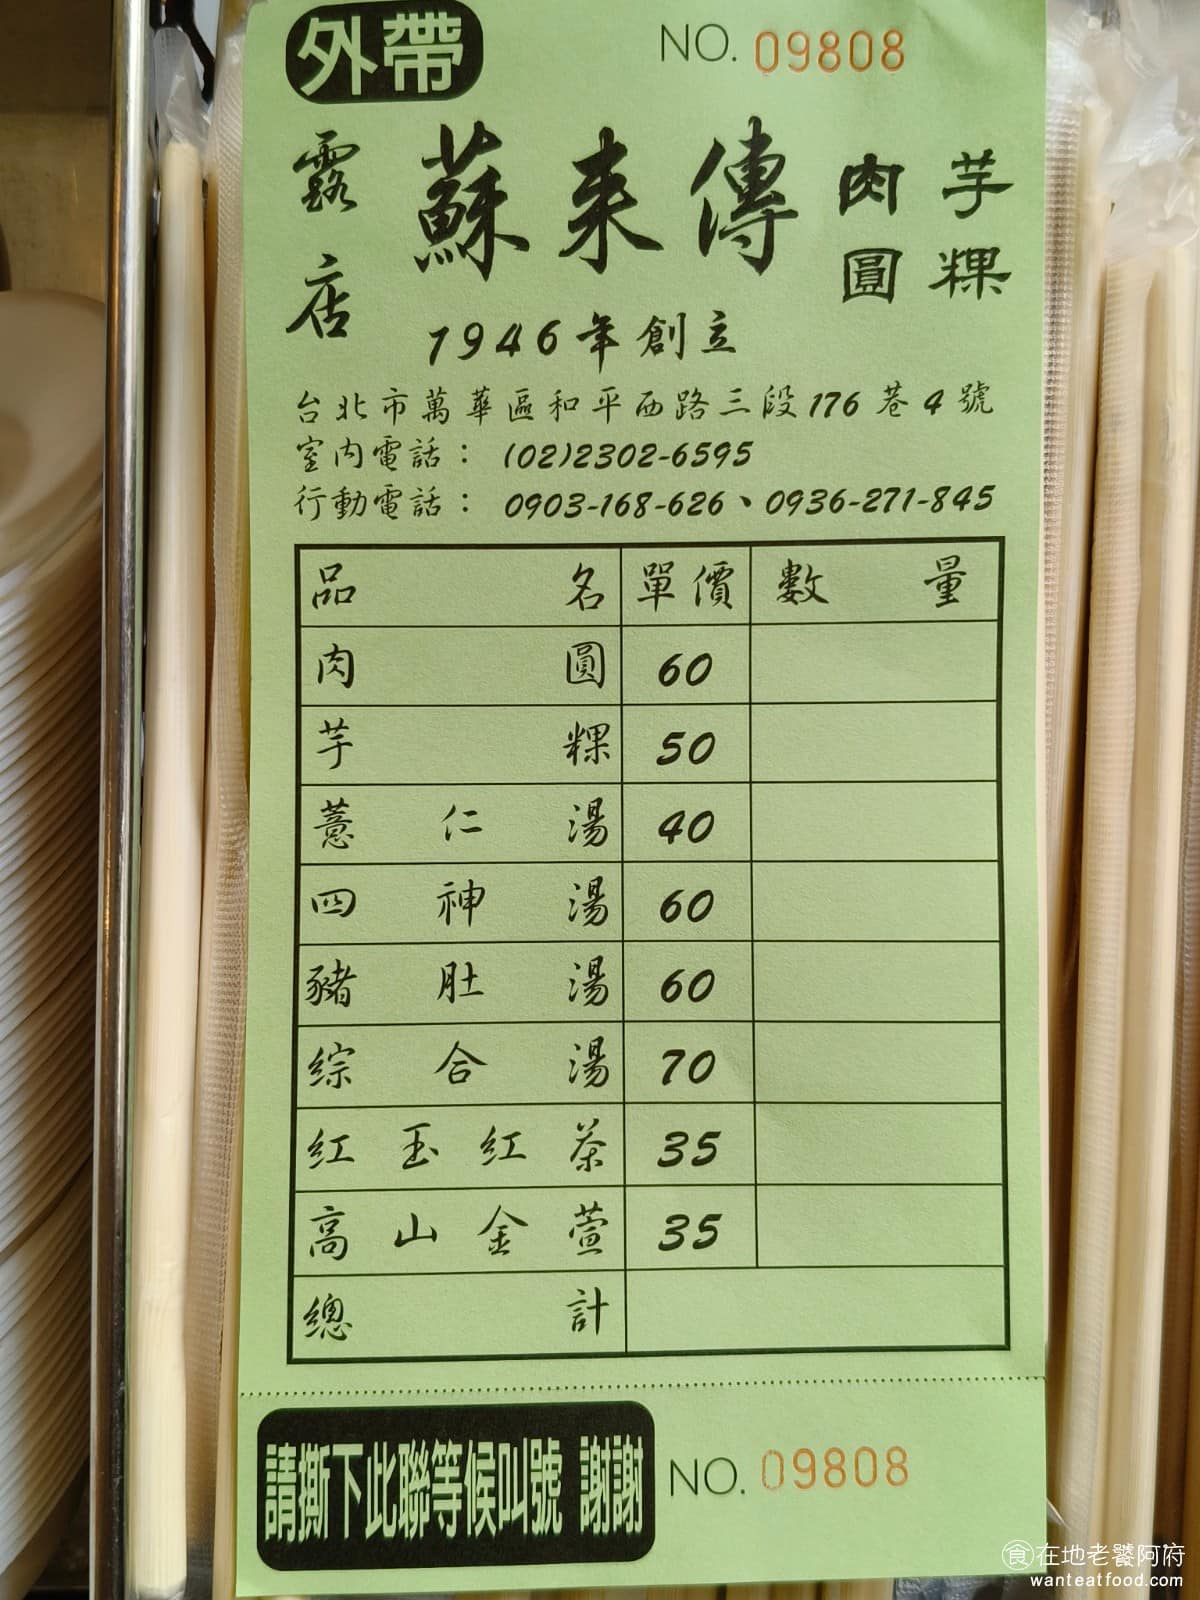 外帶
NO. 09808
露店
蘇来傳
肉圓
芋粿
1946年創立
台北市萬華區和平西路三段176巷4號
室內電話：(02)2302-6595
行動電話：0903-168-626、0936-271-845
品名 單價 數量
肉圓 60
芋粿 50
薏仁湯 40
四神湯 60
豬肚湯 60
綜合湯 70
紅玉紅茶 35
高山金萱 35
總計
請撕下此聯等候叫號 謝謝
NO. 09808
食在地老饕阿府
wanteatfood.com